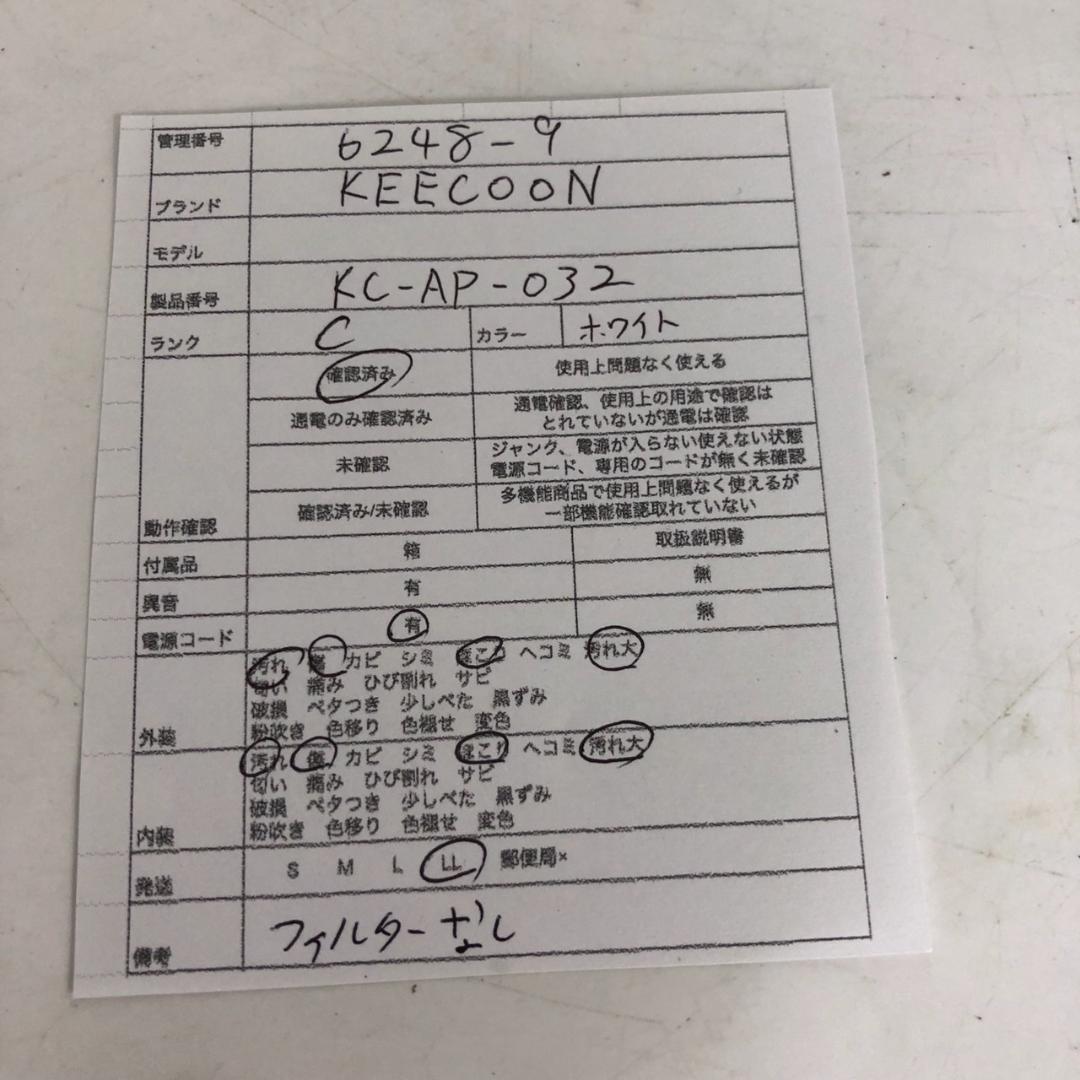 管理番号 6248-9
ブランド KEECOON
モデル
製品番号 KC-AP-032
ランク C カラー ホワイト
確認済み 使用上問題なく使える
通電のみ確認済み 通電確認、使用上の用途で確認は
とれていないが通電は確認
未確認 ジャンク、電源が入らない使えない状態
電源コード、専用のコードが無く未確認
動作確認 確認済み/未確認 多機能商品で使用上問題なく使えるが
一部機能確認取れていない
付属品 箱 取扱説明書
異音 有 無
電源コード 有 無
汚れ 傷 カビ シミ ほこり ヘコミ 汚れ大
匂い 痛み ひび割れ サビ
破損 ベタつき 少しべた 黒ずみ
外装 粉吹き 色移り 色褪せ 変色
汚れ 傷 カビ シミ ほこり ヘコミ 汚れ大
匂い 痛み ひび割れ サビ
破損 ベタつき 少しべた 黒ずみ
内装 粉吹き 色移り 色褪せ 変色
発送 S M L LL 郵便局×
備考 フィルターなし